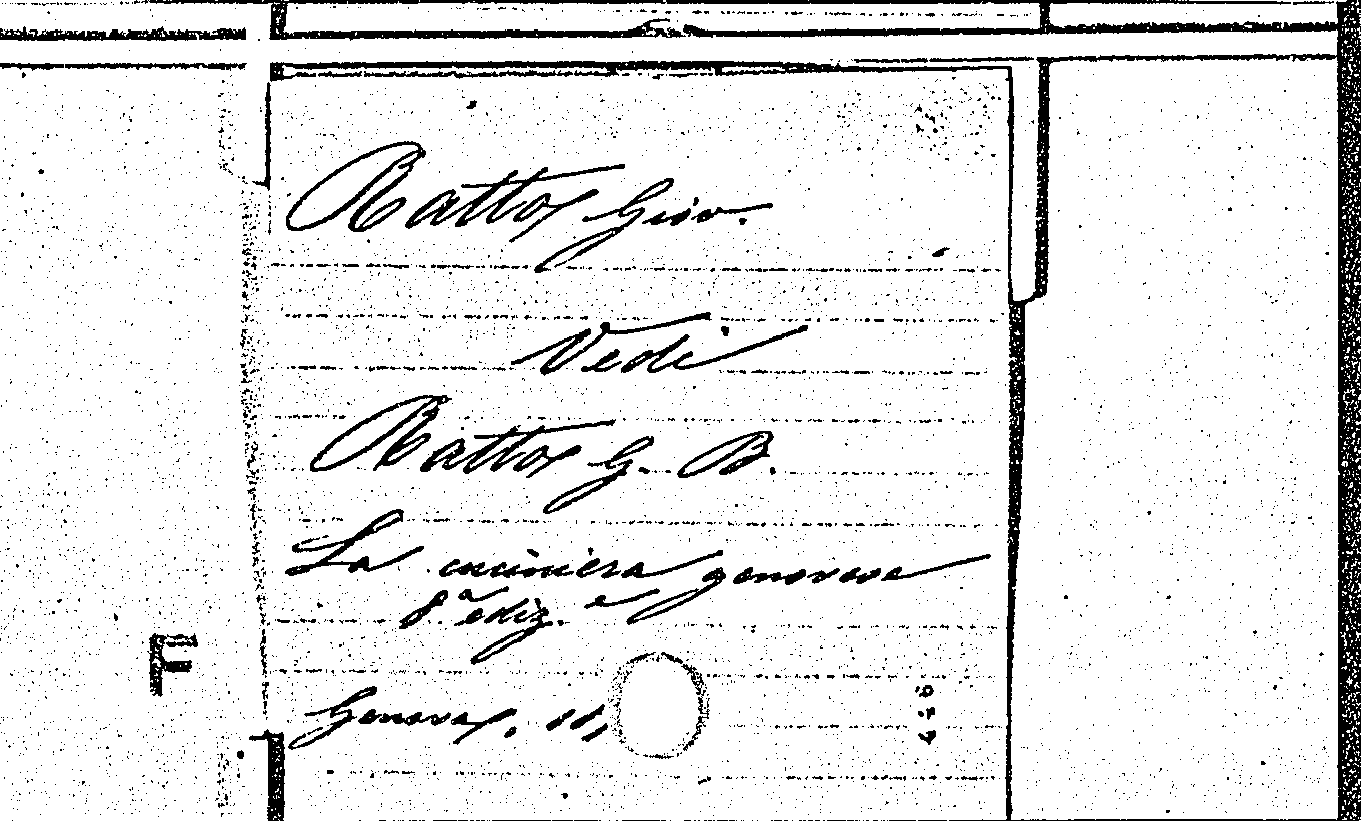 Ratto, Giov.
Vedi
Ratto, G. B.
La cuciniera genovese
8ª ediz.
F
Genova, ss,